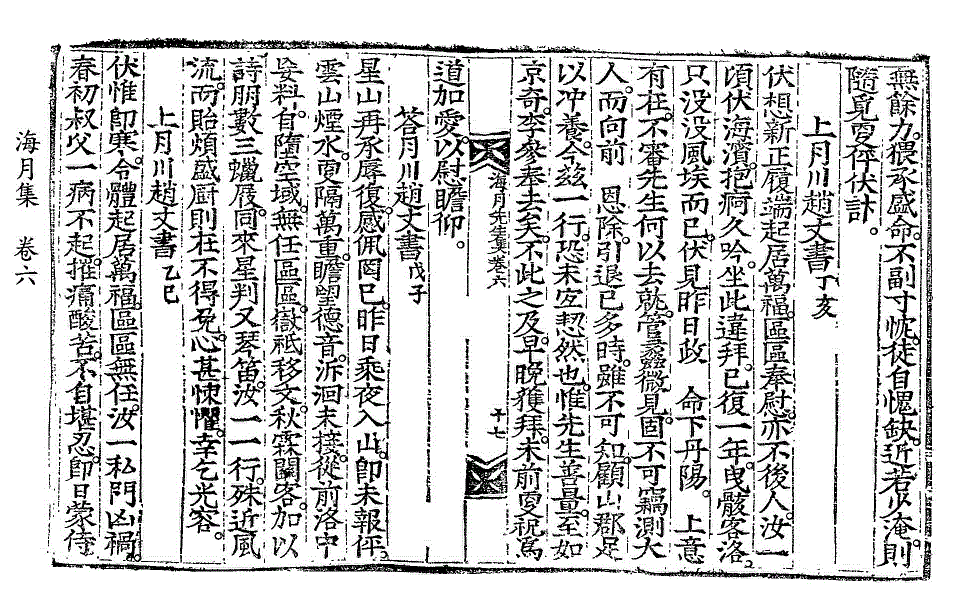 無餘力。猥承盛命。不副寸忱。徒自愧缺。近若少淹。則
隨覓更伻伏計。
上月川趙丈書 丁亥
伏想新正履端。起居萬福。區區奉慰。亦不後人。汝一
頃伏海濱。抱痾久吟。坐此違拜。已復一年。曳骸客洛。
只沒沒風埃而已。伏見昨日政 命下丹陽。 上意
有在。不審先生何以去就。管蠡微見。固不可竊測大
人。而向前 恩除。引退已多時。雖不可知。顧山郡足
以冲養。今玆一行。恐未宜恝然也。惟先生善量。至如
京奇。李參奉去矣。不此之及。早晩獲拜。未前更祝爲
道加愛。以尉瞻仰。
海月先生文集卷六
十七
答月川趙丈書 戊子
星山再承辱復。感佩罔已。昨日乘夜入山。卽未報伻。
雲山煙水。更隔萬重。瞻望德音。泝洄未接。從前洛中
妄料。自墮空域。無任區區。嶽祗移文。秋霖關客。加以
詩朋數三蠟屐。同來星判又琴笛。汝一一行。殊近風
流。而貽煩盛厨則在不得免。心甚悚懼。幸乞光容。
上月川趙丈書 乙巳
伏惟卽寒。令體起居萬福。區區無任。汝一私門凶禍。
春初叔父一病不起。摧痛酸苦。不自堪忍。卽日蒙侍
海月集 卷六